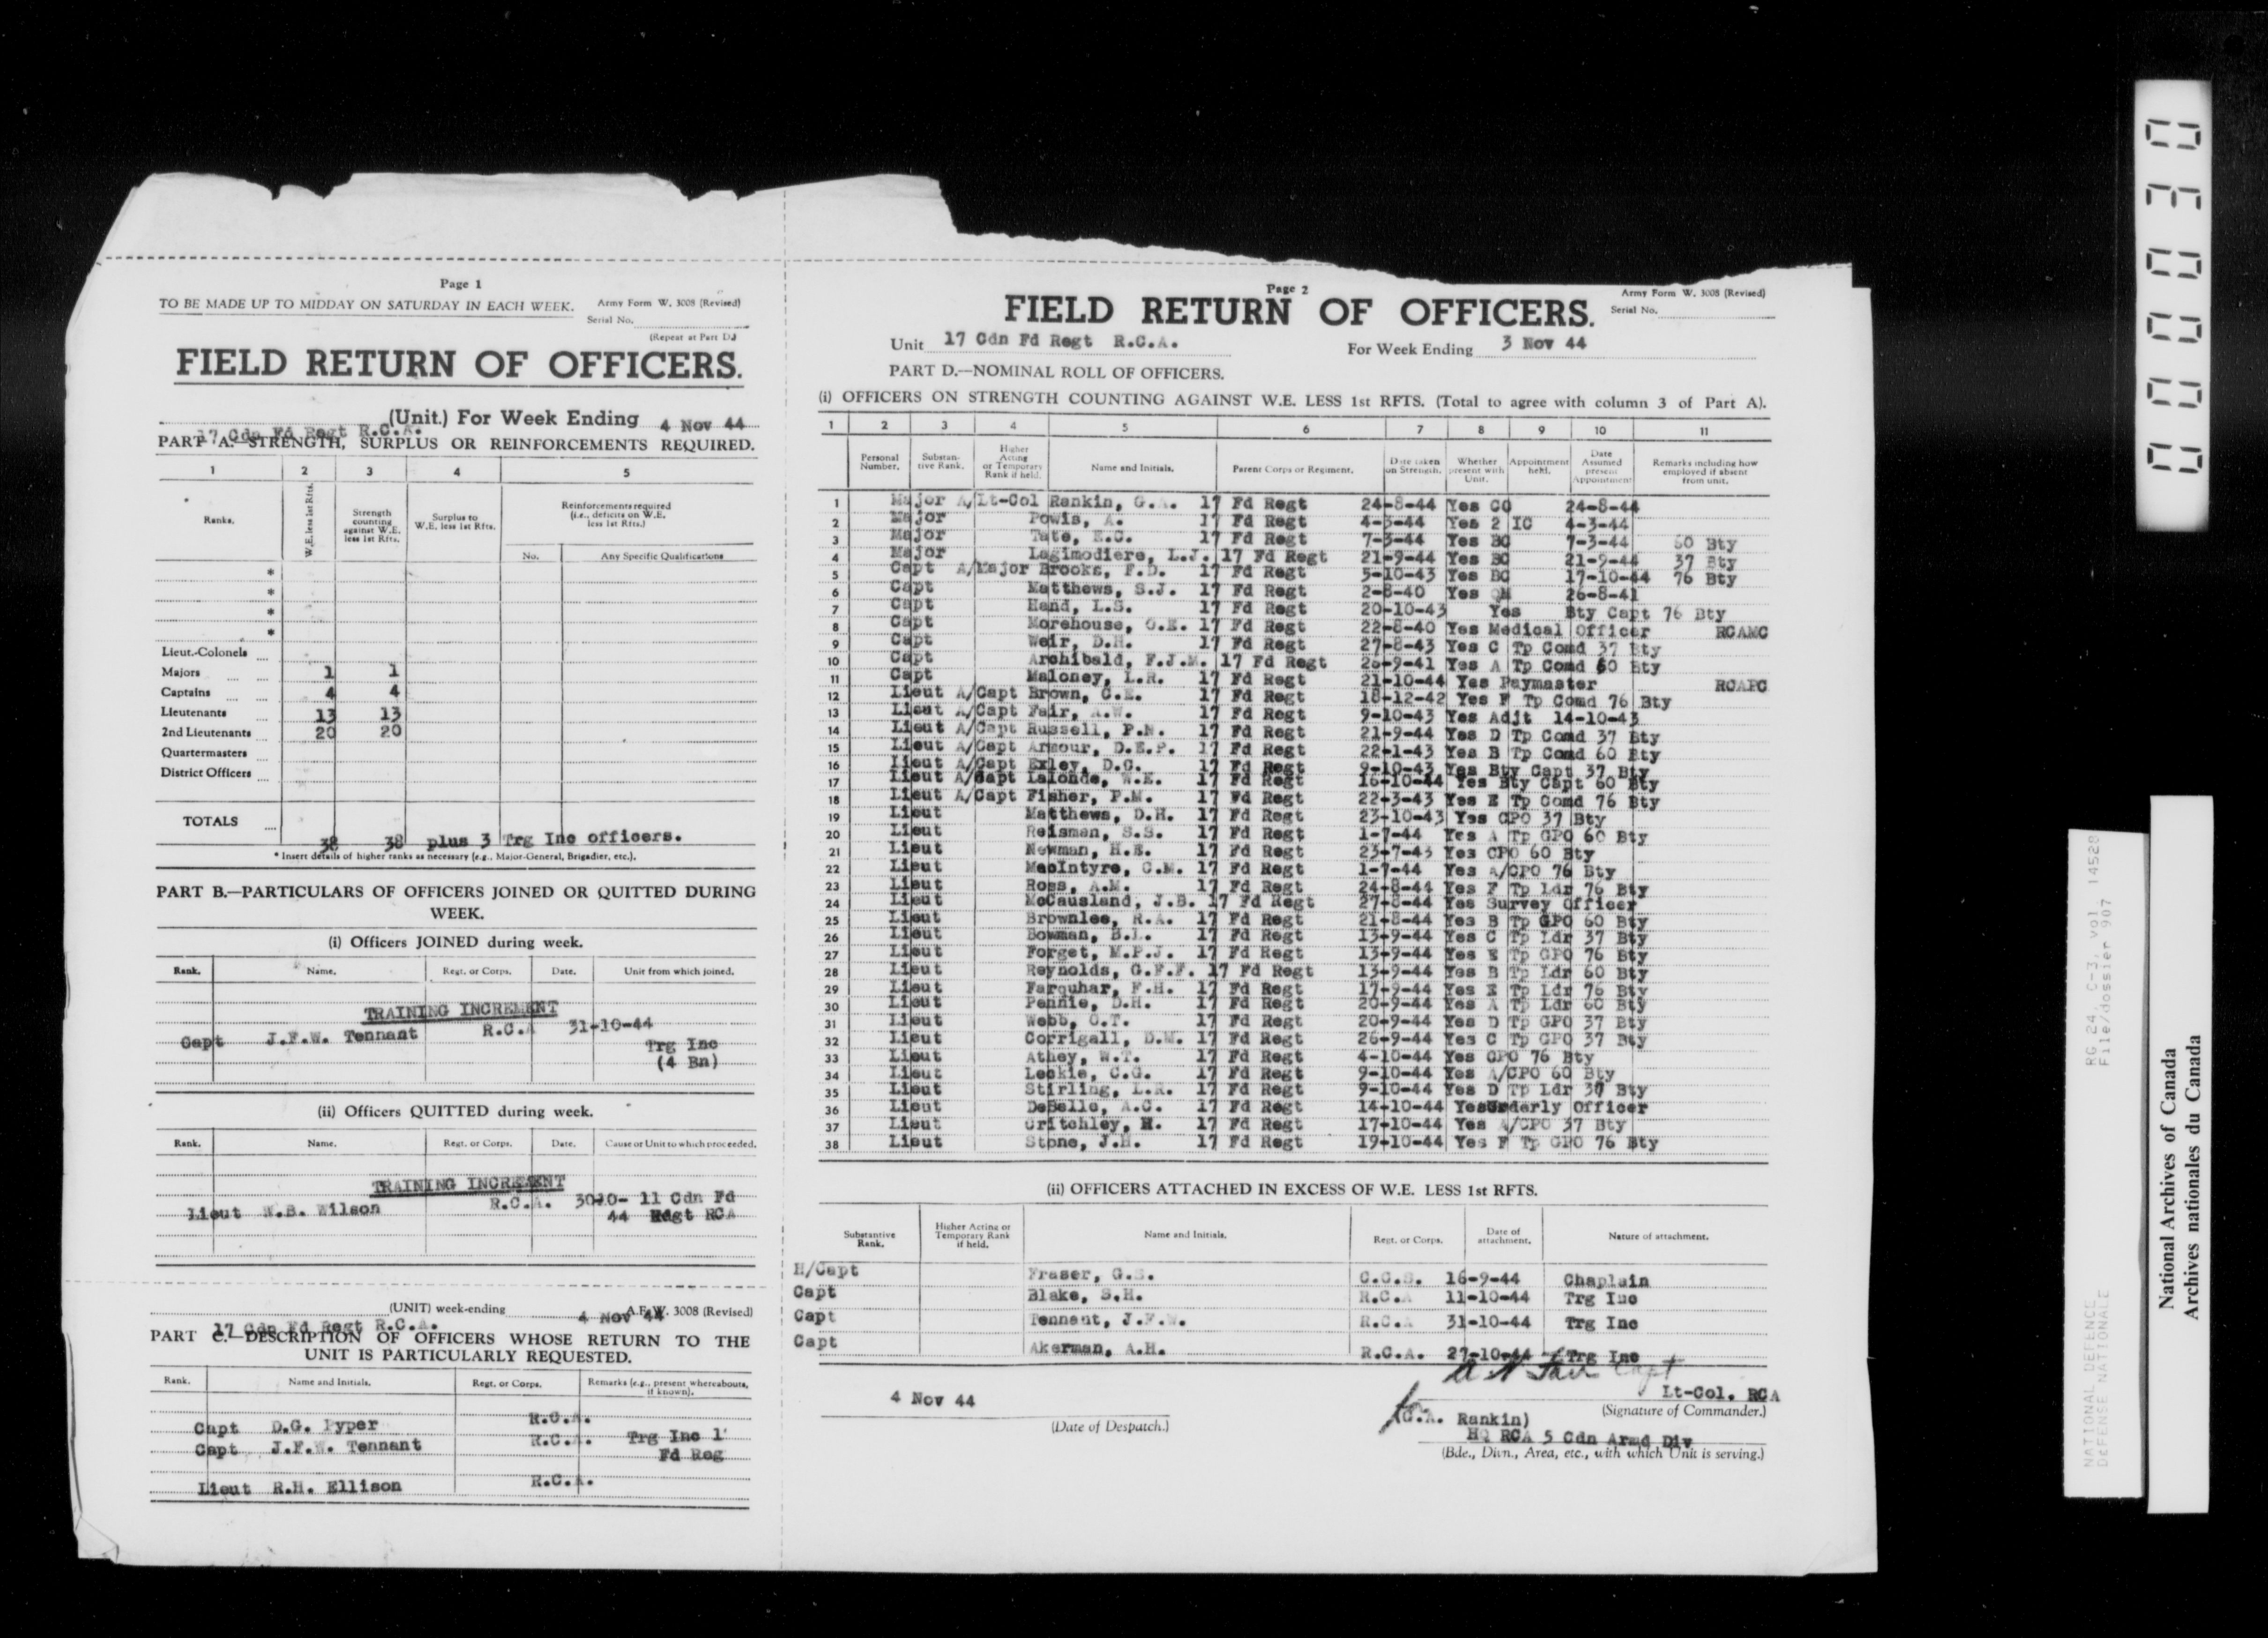 Page 1
TO BE MADE UP TO MIDDAY ON SATURDAY IN EACH WEEK.
Army Form W. 3008 (Revised)
Serial No.
(Repeat at Part D.)
FIELD RETURN OF OFFICERS.
17 Cdn Fd Regt R.C.A. (Unit.) For Week Ending 4 Nov 44
PART A.—STRENGTH, SURPLUS OR REINFORCEMENTS REQUIRED.
1 2 3 4 5
Ranks.
W.E. less 1st Rfts.
Strength counting against W.E. less 1st Rfts.
Surplus to W.E. less 1st Rfts.
Reinforcements required (i.e., deficits on W.E. less 1st Rfts.)
No. Any Specific Qualifications
*
*
*
*
Lieut.-Colonels
Majors 1 1
Captains 4 4
Lieutenants 13 13
2nd Lieutenants 20 20
Quartermasters
District Officers
TOTALS 38 38 plus 3 Trg Inc officers.
* Insert details of higher ranks as necessary (e.g., Major-General, Brigadier, etc.).
PART B.—PARTICULARS OF OFFICERS JOINED OR QUITTED DURING
WEEK.
(i) Officers JOINED during week.
Rank. Name. Regt. or Corps. Date. Unit from which joined.
TRAINING INCREMENT
Capt J.F.W. Tennant R.C.A 31-10-44 Trg Inc
(4 Bn)
(ii) Officers QUITTED during week.
Rank. Name. Regt. or Corps. Date. Cause or Unit to which proceeded.
TRAINING INCREMENT
Lieut W.B. Wilson R.C.A. 3010- 11 Cdn Fd
44 Rdgt RCA
17 Cdn Fd Regt R.C.A. (UNIT) week-ending 4 Nov 44 A.F.W. 3008 (Revised)
PART C.—DESCRIPTION OF OFFICERS WHOSE RETURN TO THE
UNIT IS PARTICULARLY REQUESTED.
Rank. Name and Initials. Regt. or Corps. Remarks (e.g., present whereabouts, if known).
Capt D.G. Pyper R.C.A.
Capt J.F.W. Tennant R.C.A. Trg Inc 1'
Fd Reg
Lieut R.H. Ellison R.C.A.
Page 2
Army Form W. 3008 (Revised)
Serial No.
FIELD RETURN OF OFFICERS.
Unit 17 Cdn Fd Regt R.C.A. For Week Ending 3 Nov 44
PART D.—NOMINAL ROLL OF OFFICERS.
(i) OFFICERS ON STRENGTH COUNTING AGAINST W.E. LESS 1st RFTS. (Total to agree with column 3 of Part A).
1 2 3 4 5 6 7 8 9 10 11
Personal Number. Substantive Rank. Higher Acting or Temporary Rank if held. Name and Initials. Parent Corps or Regiment. Date taken on Strength. Whether present with Unit. Appointment held. Date Assumed present Appointment Remarks including how employed if absent from unit.
1 Major A/Lt-Col Rankin, G.A. 17 Fd Regt 24-8-44 Yes CO 24-8-44
2 Major Powis, A. 17 Fd Regt 4-3-44 Yes 2 IC 4-3-44
3 Major Tate, E.C. 17 Fd Regt 7-3-44 Yes BC 7-3-44 60 Bty
4 Major Lagimodiere, L.J. 17 Fd Regt 21-9-44 Yes BC 21-9-44 37 Bty
5 Capt A/Major Brooks, F.D. 17 Fd Regt 5-10-43 Yes BC 17-10-44 76 Bty
6 Capt Matthews, S.J. 17 Fd Regt 2-8-40 Yes QM 26-8-41
7 Capt Hand, L.S. 17 Fd Regt 20-10-43 Yes Bty Capt 76 Bty
8 Capt Morehouse, O.E. 17 Fd Regt 22-8-40 Yes Medical Officer RCAMC
9 Capt Weir, D.H. 17 Fd Regt 27-8-43 Yes C Tp Comd 37 Bty
10 Capt Archibald, F.J.M. 17 Fd Regt 26-9-41 Yes A Tp Comd 60 Bty
11 Capt Maloney, L.R. 17 Fd Regt 21-10-44 Yes Paymaster RCAPC
12 Lieut A/Capt Brown, C.E. 17 Fd Regt 18-12-42 Yes F Tp Comd 76 Bty
13 Lieut A/Capt Fair, A.W. 17 Fd Regt 9-10-43 Yes Adjt 14-10-43
14 Lieut A/Capt Russell, P.N. 17 Fd Regt 21-9-44 Yes D Tp Comd 37 Bty
15 Lieut A/Capt Armour, D.E.P. 17 Fd Regt 22-1-43 Yes B Tp Comd 60 Bty
16 Lieut A/Capt Exley, D.C. 17 Fd Regt 9-10-43 Yes Bty Capt 37 Bty
17 Lieut A/Capt Lalonde, W.E. 17 Fd Regt 16-10-44 Yes Bty Capt 60 Bty
18 Lieut A/Capt Fisher, P.M. 17 Fd Regt 22-3-43 Yes E Tp Comd 76 Bty
19 Lieut Matthews, D.H. 17 Fd Regt 23-10-43 Yes CPO 37 Bty
20 Lieut Reisman, S.S. 17 Fd Regt 1-7-44 Yes A Tp GPO 60 Bty
21 Lieut Newman, H.E. 17 Fd Regt 23-7-43 Yes CPO 60 Bty
22 Lieut MacIntyre, C.M. 17 Fd Regt 1-7-44 Yes A/CPO 76 Bty
23 Lieut Ross, A.M. 17 Fd Regt 24-8-44 Yes F Tp Ldr 76 Bty
24 Lieut McCausland, J.B. 17 Fd Regt 27-8-44 Yes Survey Officer
25 Lieut Brownlee, R.A. 17 Fd Regt 21-8-44 Yes B Tp GPO 60 Bty
26 Lieut Bowman, B.L. 17 Fd Regt 13-9-44 Yes C Tp Ldr 37 Bty
27 Lieut Forget, M.P.J. 17 Fd Regt 13-9-44 Yes E Tp GPO 76 Bty
28 Lieut Reynolds, G.F.F. 17 Fd Regt 13-9-44 Yes B Tp Ldr 60 Bty
29 Lieut Farquhar, F.H. 17 Fd Regt 17-9-44 Yes E Tp Ldr 76 Bty
30 Lieut Pennie, D.H. 17 Fd Regt 20-9-44 Yes A Tp Ldr 60 Bty
31 Lieut Webb, O.T. 17 Fd Regt 20-9-44 Yes D Tp GPO 37 Bty
32 Lieut Corrigall, D.M. 17 Fd Regt 26-9-44 Yes C Tp GPO 37 Bty
33 Lieut Athey, W.T. 17 Fd Regt 4-10-44 Yes CPO 76 Bty
34 Lieut Leckie, C.G. 17 Fd Regt 9-10-44 Yes A/CPO 60 Bty
35 Lieut Stirling, L.R. 17 Fd Regt 9-10-44 Yes D Tp Ldr 37 Bty
36 Lieut DeBelle, A.C. 17 Fd Regt 14-10-44 Yes Orderly Officer
37 Lieut Critchley, H. 17 Fd Regt 17-10-44 Yes A/CPO 37 Bty
38 Lieut Stone, J.H. 17 Fd Regt 19-10-44 Yes F Tp GPO 76 Bty
(ii) OFFICERS ATTACHED IN EXCESS OF W.E. LESS 1st RFTS.
Substantive Rank. Higher Acting or Temporary Rank if held. Name and Initials. Regt. or Corps. Date of attachment. Nature of attachment.
H/Capt Fraser, G.S. C.C.S. 16-9-44 Chaplain
Capt Blake, S.H. R.C.A 11-10-44 Trg Inc
Capt Tennant, J.F.W. R.C.A 31-10-44 Trg Inc
Capt Akerman, A.H. R.C.A. 27-10-44 Trg Inc
A W Fair Capt
4 Nov 44
(Date of Despatch.)
Lt-Col. RCA
for (G.A. Rankin)
(Signature of Commander.)
HQ RCA 5 Cdn Armd Div
(Bde., Divn., Area, etc., with which Unit is serving.)
000030
RG 24, C-3, vol. 14528
File/dossier 907
NATIONAL DEFENCE
DEFENSE NATIONALE
National Archives of Canada
Archives nationales du Canada